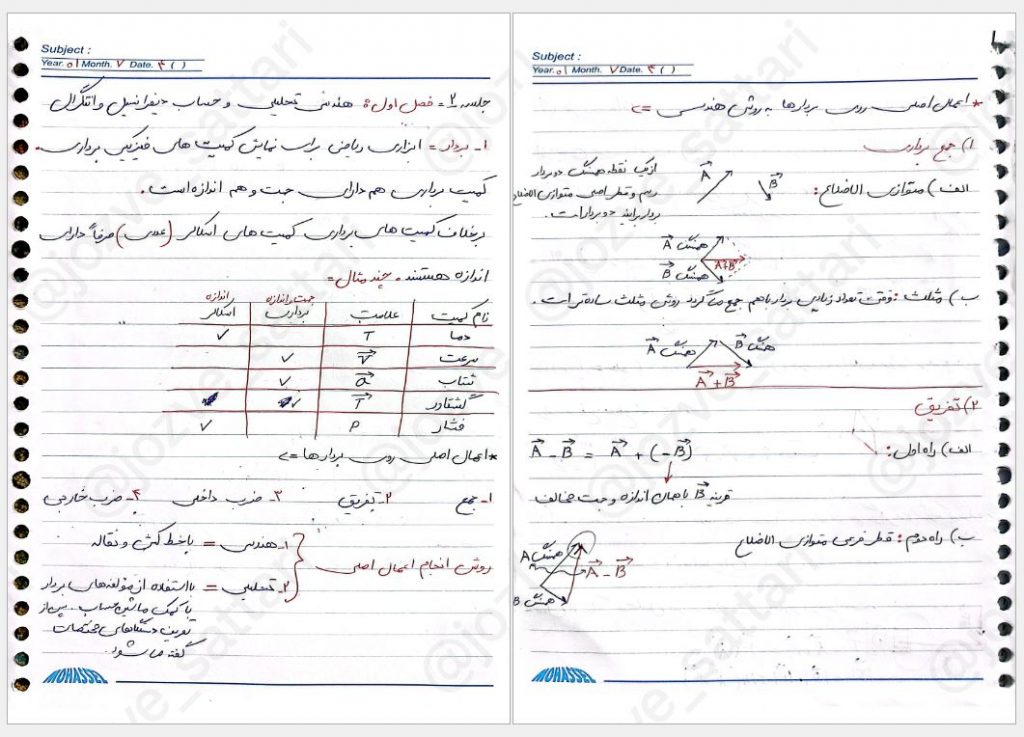 Subject :
Year. ۰۱ Month. ۷ Date. ۴ ( )
جلسه ۲ = فصل اول: هندسی تحلیلی و حساب دیفرانسیل و انتگرال
۱- بردار = ابزاری ریاضی برای نمایش کمیت های فیزیکی برداری.
کمیت برداری هم دارای جهت و هم اندازه است.
برخلاف کمیت های برداری کمیت های اسکالر (عددی) صرفاً دارای
اندازه هستند. چند مثال =
نام کمیت علامت جهت و اندازه برداری اندازه اسکالر
دما T ✓
سرعت V⃗ ✓
شتاب a⃗ ✓
گشتاور T⃗ ✓
فشار P ✓
* اعمال اصلی روی بردارها =>
۱- جمع ۲- تفریق ۳- ضرب داخلی ۴- ضرب خارجی
روش انجام اعمال اصلی
۱- هندسی = با خط کش و نقاله
۲- تحلیلی = با استفاده از مولفه های بردار
با کمک ماشین حساب. پس از
دستگاه های مختصات
گفته می شود.
MOHASSEL
Subject :
Year. ۰۱ Month. ۷ Date. ۴ ( )
* اعمال اصلی روی بردارها به روش هندسی =>
۱) جمع برداری
الف) متوازی الاضلاع:
از یک نقطه همسنگ دو بردار
رسم و قطر اصلی متوازی الاضلاع
بردار برایند دو بردار است.
A⃗ B⃗
همسنگ A⃗
A+B
همسنگ B⃗
ب) مثلث: وقتی تعداد زیادی بردار با هم جمع می گردد روش مثلث ساده تر است.
همسنگ A⃗ همسنگ B⃗
A⃗ + B⃗
۲) تفریق
الف) راه اول: A⃗ - B⃗ = A⃗ + (-B⃗)
قرینه B⃗ با همان اندازه و جهت مخالف
ب) راه دوم: قطر فرعی متوازی الاضلاع
همسنگ A
A⃗ - B⃗
همسنگ B
MOHASSEL
@jozve_sattari